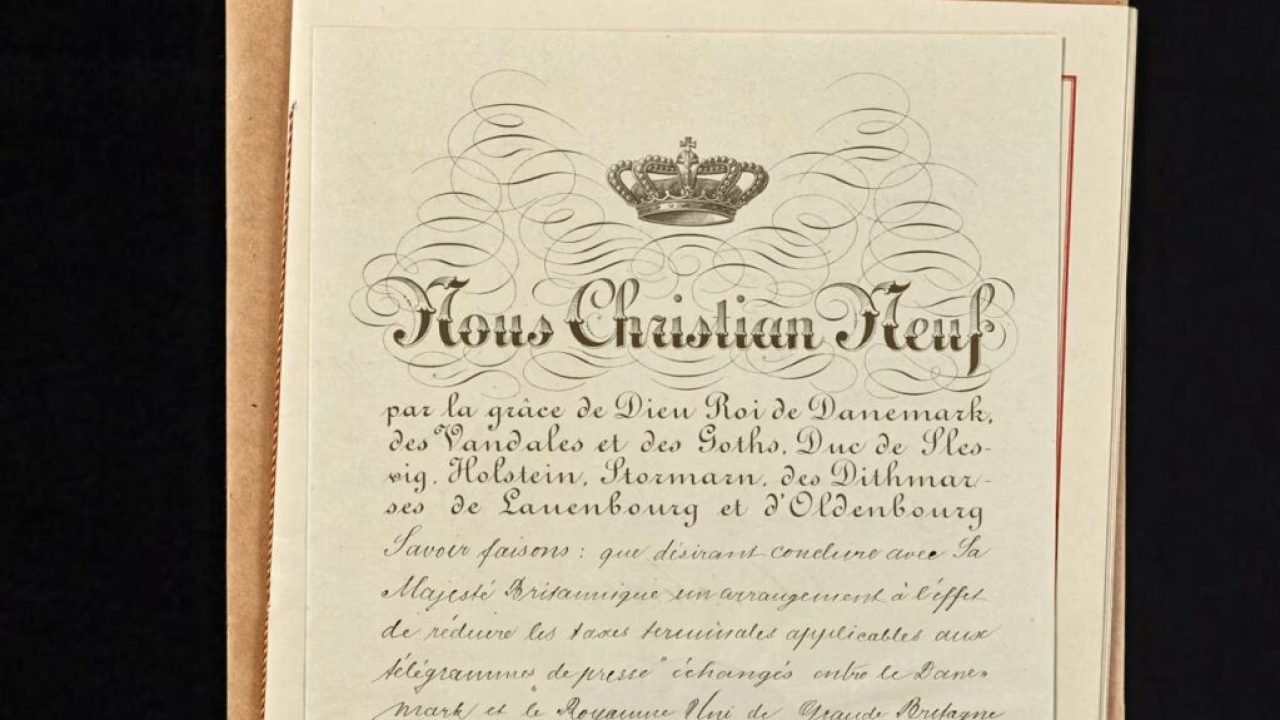 Nous Christian Neuf
par la grâce de Dieu Roi de Danemark,
des Vandales et des Goths, Duc de Sles-
vig, Holstein, Stormarn, des Dithmar-
ses de Lauenbourg et d'Oldenbourg
Savoir faisons: que désirant conclure avec Sa
Majesté Britannique un arrangement à l'effet
de réduire les taxes terminales applicables aux
télégrammes de presse" échangés entre le Dane-
mark et le Royaume Uni de Grande Bretagne